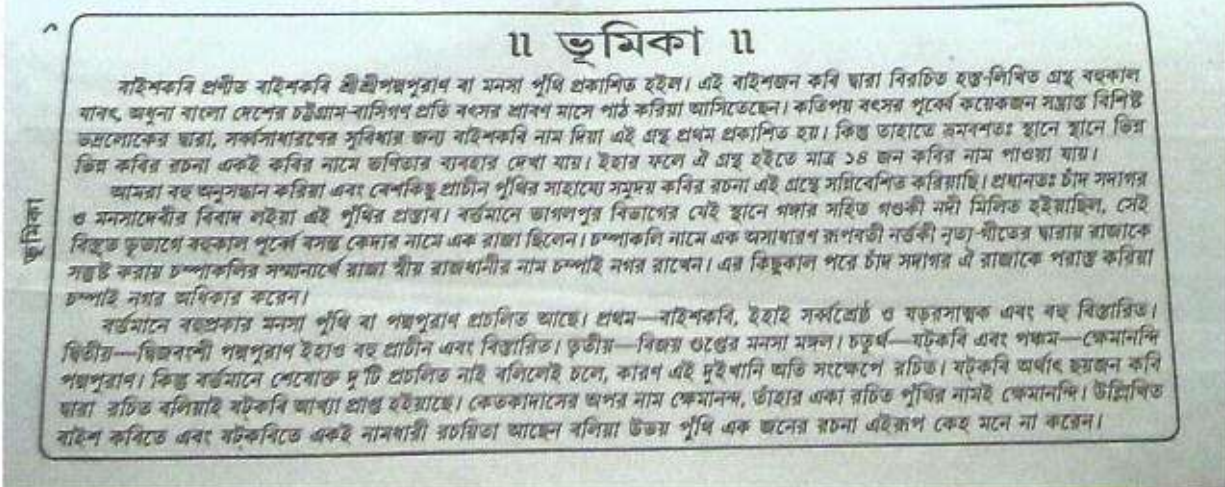 ॥ ভূমিকা ॥
বাইশকবি প্রণীত বাইশকবি শ্রীশ্রীপদ্মপুরাণ বা মনসা পুঁথি প্রকাশিত হইল। এই বাইশজন কবি দ্বারা বিরচিত হস্ত-লিখিত গ্রন্থ বহুকাল
যাবৎ, অধুনা বাংলা দেশের চট্টগ্রাম-বাসিগণ প্রতি বৎসর শ্রাবণ মাসে পাঠ করিয়া আসিতেছেন। কতিপয় বৎসর পূর্ব্বে কয়েকজন সম্ভ্রান্ত বিশিষ্ট
ভদ্রলোকের দ্বারা, সর্ব্বসাধারণের সুবিধার জন্য বাইশকবি নাম দিয়া এই গ্রন্থ প্রথম প্রকাশিত হয়। কিন্তু তাহাতে ভ্রমবশতঃ স্থানে স্থানে ভিন্ন
ভিন্ন কবির রচনা একই কবির নামে ভণিতার ব্যবহার দেখা যায়। ইহার ফলে ঐ গ্রন্থ হইতে মাত্র ১৪ জন কবির নাম পাওয়া যায়।
আমরা বহু অনুসন্ধান করিয়া এবং বেশকিছু প্রাচীন পুঁথির সাহায্যে সমুদয় কবির রচনা এই গ্রন্থে সন্নিবেশিত করিয়াছি। প্রধানতঃ চাঁদ সদাগর
ও মনসাদেবীর বিবাদ লইয়া এই পুঁথির প্রস্তাব। বর্ত্তমানে ভাগলপুর বিভাগের যেই স্থানে গঙ্গার সহিত গণ্ডকী নদী মিলিত হইয়াছিল, সেই
বিস্তৃত ভূভাগে বহুকাল পূর্ব্বে বসন্ত কেদার নামে এক রাজা ছিলেন। চম্পাকলি নামে এক অসাধারণ রূপবতী নর্ত্তকী নৃত্য-গীতের দ্বারায় রাজাকে
সন্তুষ্ট করায় চম্পাকলির সম্মানার্থে রাজা স্বীয় রাজধানীর নাম চম্পাই নগর রাখেন। এর কিছুকাল পরে চাঁদ সদাগর ঐ রাজাকে পরাস্ত করিয়া
চম্পাই নগর অধিকার করেন।
বর্ত্তমানে বহুপ্রকার মনসা পুঁথি বা পদ্মপুরাণ প্রচলিত আছে। প্রথম—বাইশকবি, ইহাই সর্ব্বশ্রেষ্ঠ ও ষড়রসাত্মক এবং বহু বিস্তারিত।
দ্বিতীয়—দ্বিজবংশী পদ্মপুরাণ ইহাও বহু প্রাচীন এবং বিস্তারিত। তৃতীয়—বিজয় গুপ্তের মনসা মঙ্গল। চতুর্থ—ষটকবি এবং পঞ্চম—ক্ষেমানন্দি
পদ্মপুরাণ। কিন্তু বর্ত্তমানে শেষোক্ত দু'টি প্রচলিত নাই বলিলেই চলে, কারণ এই দুইখানি অতি সংক্ষেপে রচিত। ষটকবি অর্থাৎ ছয়জন কবি
দ্বারা রচিত বলিয়াই ষটকবি আখ্যা প্রাপ্ত হইয়াছে। কেতকাদাসের অপর নাম ক্ষেমানন্দ, তাঁহার একা রচিত পুঁথির নামই ক্ষেমানন্দি। উল্লিখিত
বাইশ কবিতে এবং ষটকবিতে একই নামধারী রচয়িতা আছেন বলিয়া উভয় পুঁথি এক জনের রচনা এইরূপ কেহ মনে না করেন।
ভূমিকা